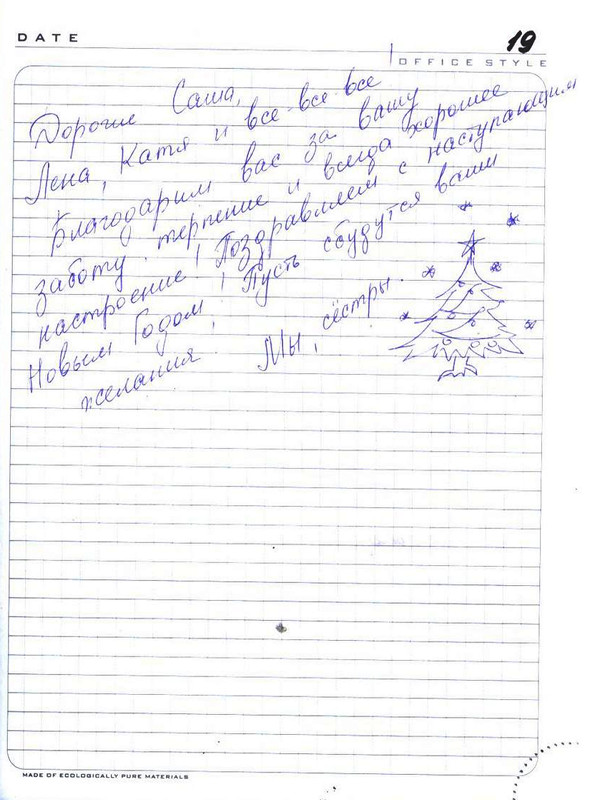 DATE
19
OFFICE STYLE
Дорогие Саша,
Лена, Катя и все-все-все
Благодарим вас за вашу
заботу, терпение и всегда хорошее
настроение! Поздравляем с наступающим
Новым Годом! Пусть сбудутся ваши
желания. Мы, сёстры.
MADE OF ECOLOGICALLY PURE MATERIALS